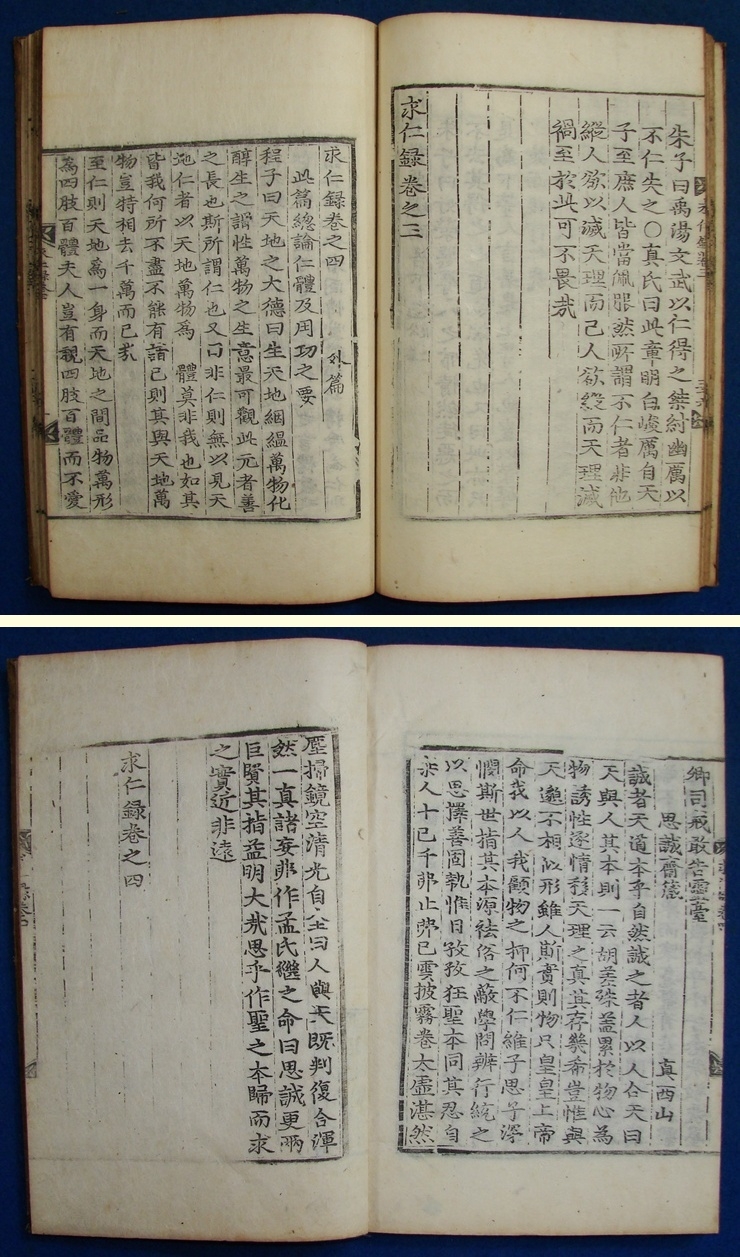 朱子曰禹湯文武以仁得之桀紂幽厲以
不仁失之○真氏曰此章明白峻厲自天
子至庶人皆當佩服然所謂不仁者非他
縱人欲以滅天理而己人欲縱而天理滅
禍至於此可不畏哉
求仁録卷之三
求仁録卷之四 外篇
此篇總論仁體及用功之要
程子曰天地之大德曰生天地絪縕萬物化
醇生之謂性萬物之生意最可觀此元者善
之長也斯所謂仁也又曰非仁則無以見天
地仁者以天地萬物為 體莫非我也如其
皆我何所不盡不能有諸己則其與天地萬
物豈特相去千萬而已哉
至仁則天地為一身而天地之間品物萬形
為四肢百體夫人豈有視四肢百體而不愛
鄉司戒敢告靈臺
思誠齋箴 真西山
誠者天道本乎自然誠之者人以人合天曰
天與人其本則一云胡差殊蓋累於物心為
物誘性逐情移天理之真其存幾希豈惟與
天邈不相似形雖人斯實則物只皇皇上帝
命我以人我顧物之抑何不仁維子思子深
憫斯世指其本源祛俗之蔽學問辨行統之
以思擇善固執惟日孜孜狂聖本同其忍自
棄人十己千弗止弗已雲披霧卷太虛湛然
塵掃鏡空清光自全曰人與天既判復合渾
然一真諸妄弗作孟氏繼之命曰思誠更兩
巨賢其指益明大哉思乎作聖之本歸而求
之實近非遠
求仁録卷之四